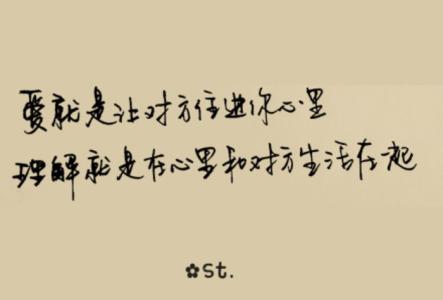 爱就是让对方住进你心里
理解就是在心里和对方生活在一起
✿st.